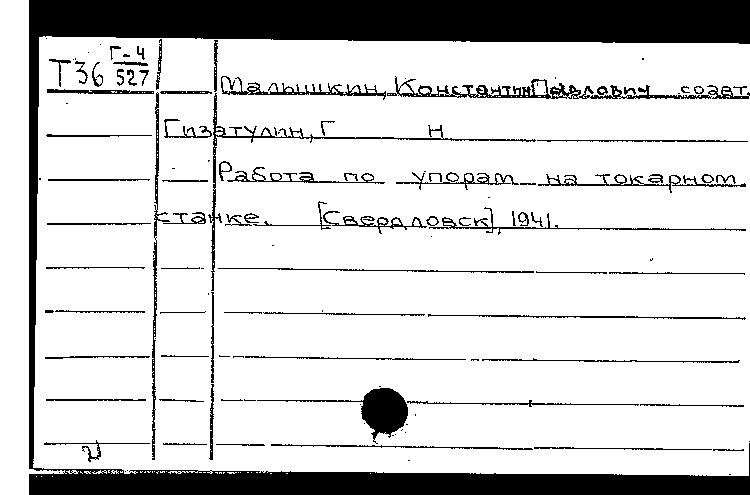 Т36 Г-4
527
Малышкин, Константин Павлович соавт.
Гизатулин, Г Н
Работа по упорам на токарном
станке. [Свердловск], 1941.